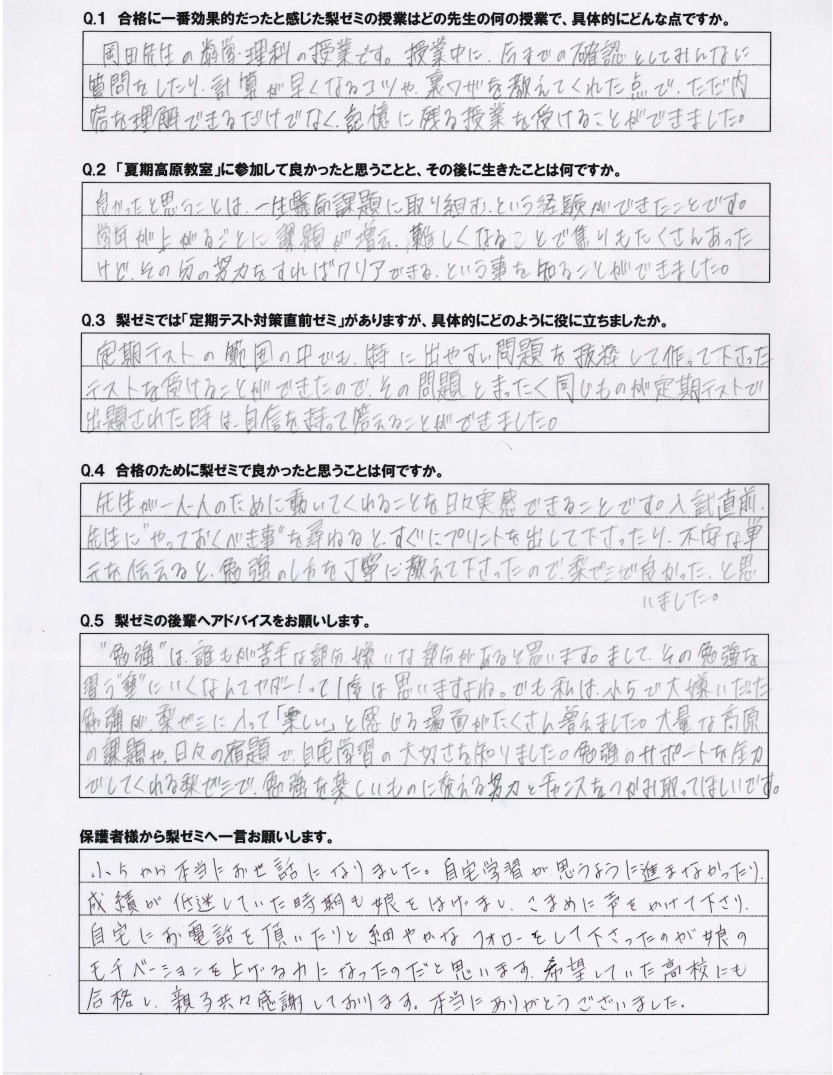 Q.1 合格に一番効果的だったと感じた梨ゼミの授業はどの先生の何の授業で、具体的にどんな点ですか。
岡田先生の数学・理科の授業です。授業中に、今までの確認としてみんなに
質問をしたり、計算が早くなるコツや、裏ワザを教えてくれた点で、ただ内
容を理解できるだけでなく、記憶に残る授業を受けることができました。
Q.2 「夏期高原教室」に参加して良かったと思うことと、その後に生きたことは何ですか。
良かったと思うことは、一生懸命課題に取り組む、という経験ができたことです。
学年が上がるごとに課題が増え、難しくなることで焦りもたくさんあった
けど、その分の努力をすればクリアできる、という事を知ることができました。
Q.3 梨ゼミでは「定期テスト対策直前ゼミ」がありますが、具体的にどのように役に立ちましたか。
定期テストの範囲の中でも、特に出やすい問題を抜粋して作って下さった
テストを受けることができたので、その問題とまったく同じものが定期テストで
出題された時は、自信を持って答えることができました。
Q.4 合格のために梨ゼミで良かったと思うことは何ですか。
先生が一人一人のために動いてくれることを日々実感できることです。入試直前、
先生に"やっておくべき事"を尋ねると、すぐにプリントを出して下さったり、不安な単
元を伝えると、勉強のし方を丁寧に教えて下さったので、梨ゼミで良かった、と思
いました。
Q.5 梨ゼミの後輩へアドバイスをお願いします。
"勉強"は、誰もが苦手な部分、嫌いな部分があると思います。まして、その勉強を
習う"塾"にいくなんてヤダー!って1度は思いますよね。でも私は、小5で大嫌いだった
勉強が梨ゼミに入って「楽しい」と感じる場面がたくさん増えました。大量な高原
の課題や、日々の宿題で、自宅学習の大切さを知りました。勉強のサポートを全力
でしてくれる梨ゼミで、勉強を楽しいものに変える努力とチャンスをつかみ取ってほしいです。
保護者様から梨ゼミへ一言お願いします。
小5から本当にお世話になりました。自宅学習が思うように進まなかったり、
成績が低迷していた時期も娘をはげまし、こまめに声をかけて下さり、
自宅にお電話を頂いたりと細やかなフォローをして下さったのが娘の
モチベーションを上げる力になったのだと思います。希望していた高校にも
合格し、親子共々感謝しております。本当にありがとうございました。